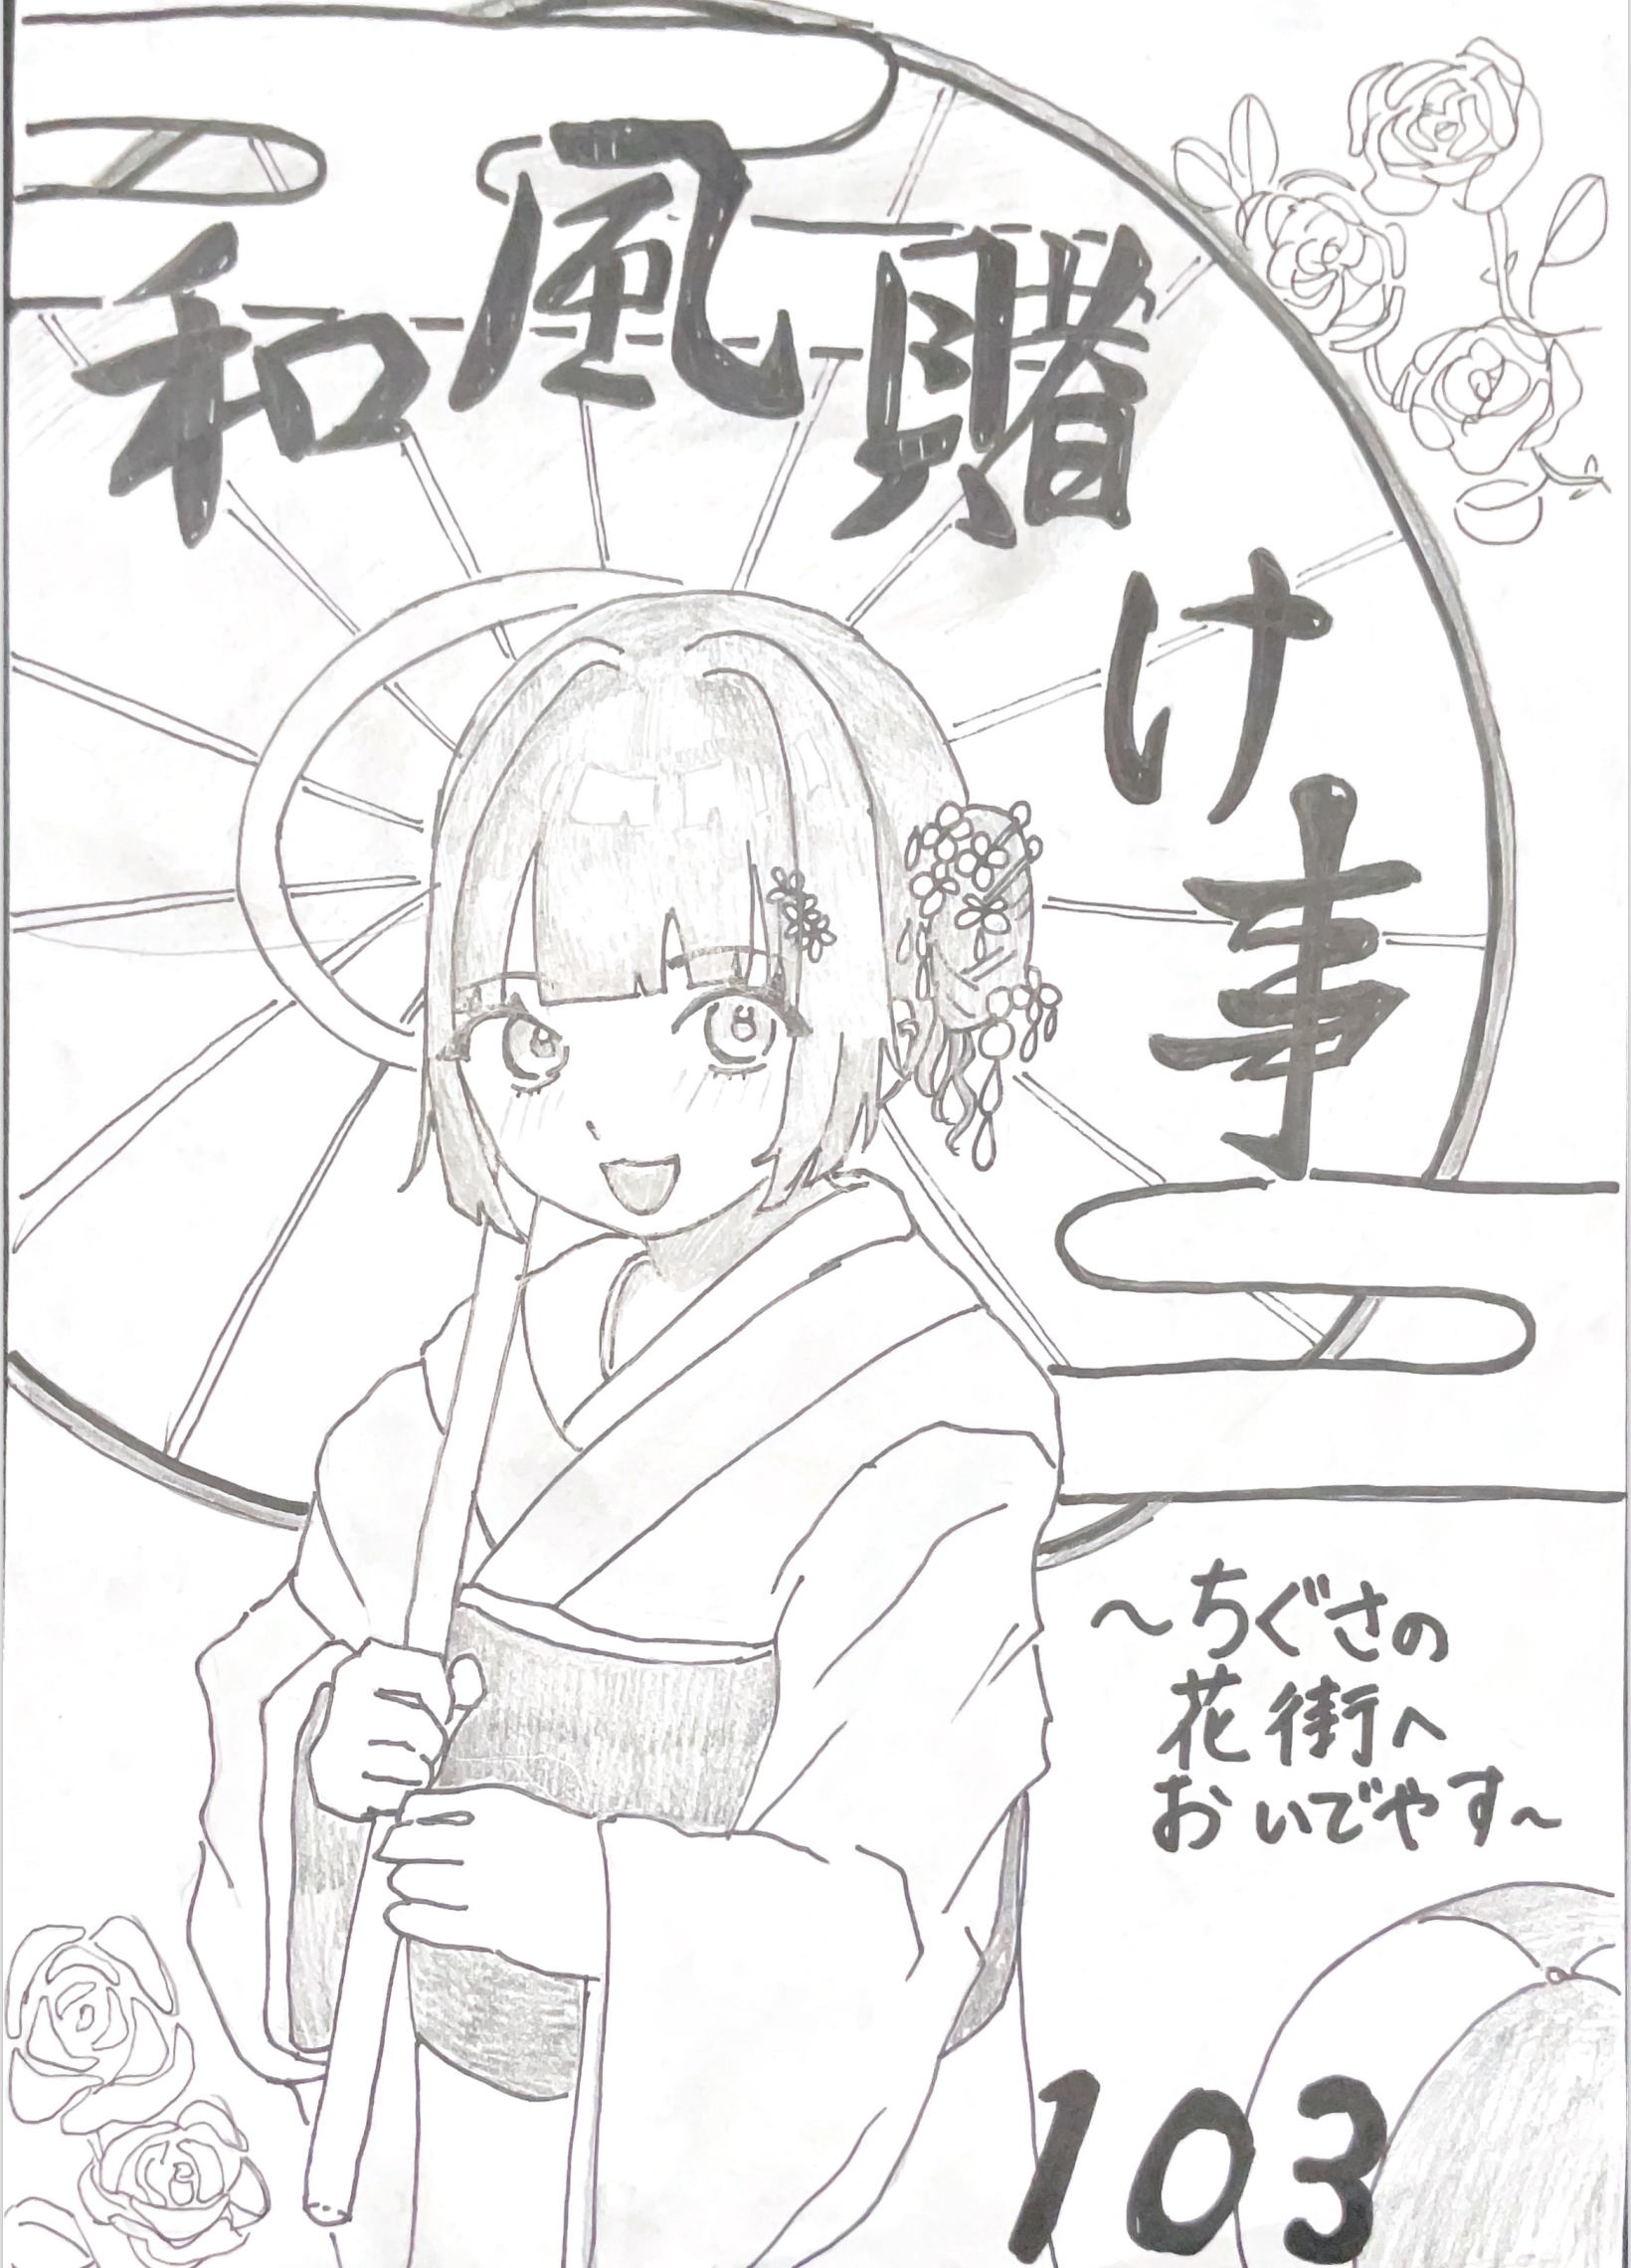 和風賭け事
～ちぐさの
花街へ
おいでやす～
103